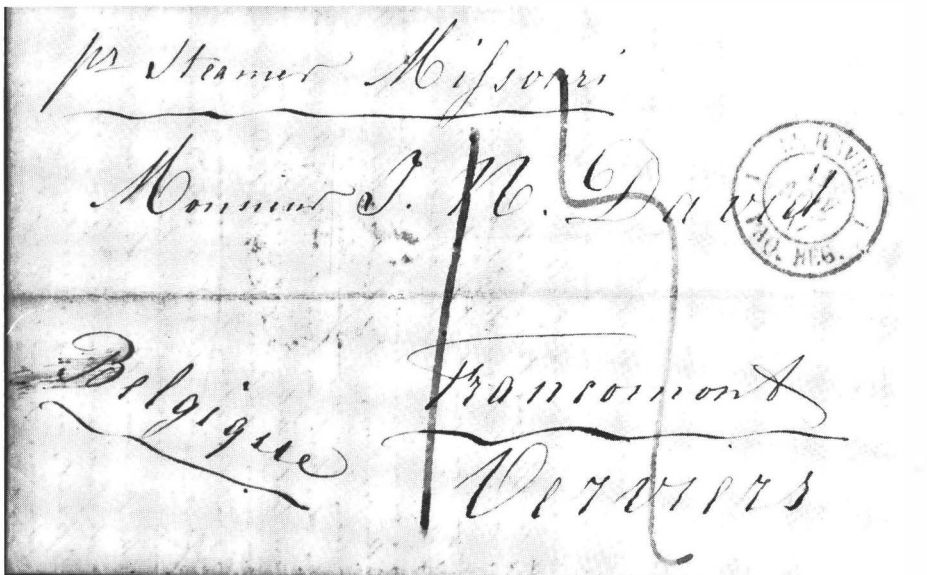 pr Steamer Missouri
Monsieur J. N. David
Belgique
Francomont
Verviers
LE HAVRE
PAQ. REG.